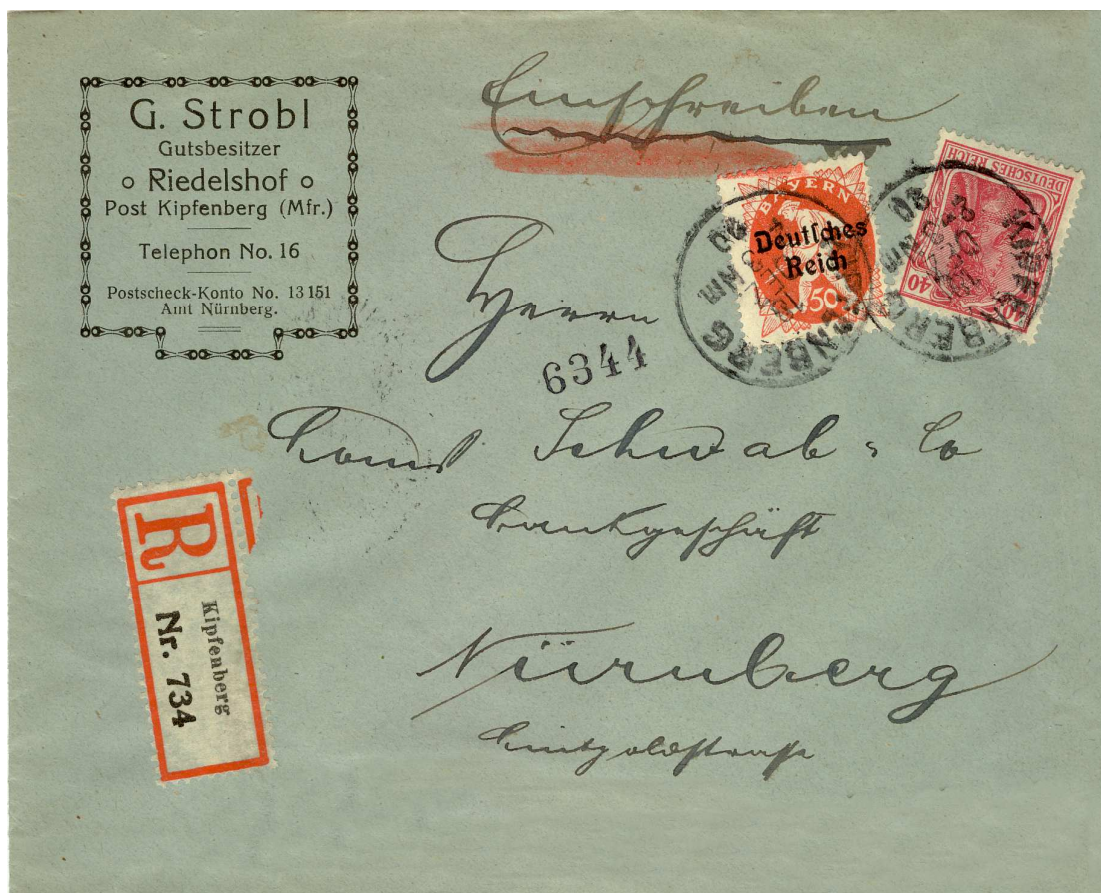 G. Strobl
Gutsbesitzer
Riedelshof
Post Kipfenberg (Mfr.)
Telephon No. 16
Postscheck-Konto No. 13151
Amt Nürnberg.
Einschreiben
BAYERN
Deutsches
Reich
50
DEUTSCHES REICH
40
KIPFENBERG
Herrn
6344
Schwab & Co
Bankgeschäft
Nürnberg
Luitpoldstrasse
R
Kipfenberg
Nr. 734